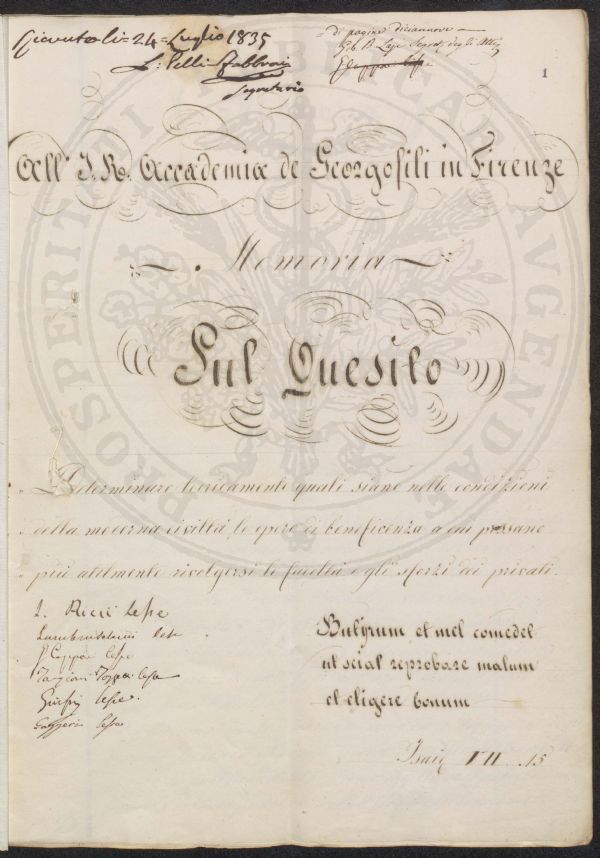 Ricevuto li = 24 = Luglio 1835
L: Pelli Fabbroni
Segretario
di pagine diciannove
Segret. degli Atti
1
All' I. R. Accademia de Georgofili in Firenze
Memoria
Sul Quesito
Determinare teoricamente quali siano nelle condizioni
della moderna civiltà le opere di beneficenza a cui possano
più utilmente rivolgersi le facoltà e gli sforzi dei privati.
L. Ricci lesse
Lambruschini lesse
Targioni Tozzetti lesse
lesse
Gazzeri lesse
Butyrum et mel comedet
ut sciat reprobare malum
et eligere bonum
Isaiæ VII. 15
PROSPERITATI PUBLICAE AVGENDAE